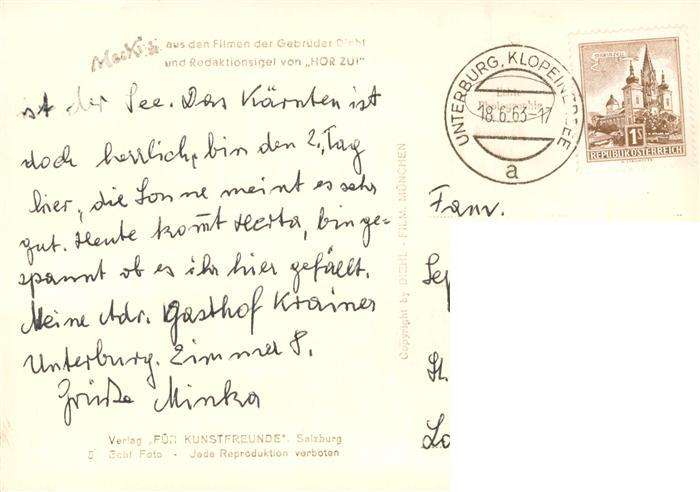 aus den Filmen der Gebrüder Diehl
und Redaktionsigel von „HÖR ZU!"
ist der See. Das Kärnten ist
doch herrlich, bin den 2. Tag
hier, die Sonne meint es sehr
gut. Heute kommt Herta, bin ge-
spannt ob es ihr hier gefällt.
Meine Adr. Gasthof Krainer
Unterburg. Zimmer 8.
Grüße Minka
Verlag „FÜR KUNSTFREUNDE", Salzburg
Echt Foto - Jede Reproduktion verboten
Copyright by DIEHL-FILM, MÜNCHEN
UNTERBURG, KLOPEINERSEE
18.6.63-17
a
1S
REPUBLIK ÖSTERREICH
Fam.